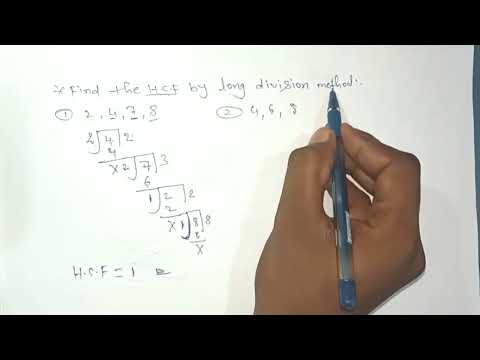 * Find the H.C.F by long division method:-
① 2, 4, 7, 8
② 4, 6, 8
2 4 2
4
x 2 7 3
6
1 2 2
2
x 1 8 8
8
x
H.C.F = 1